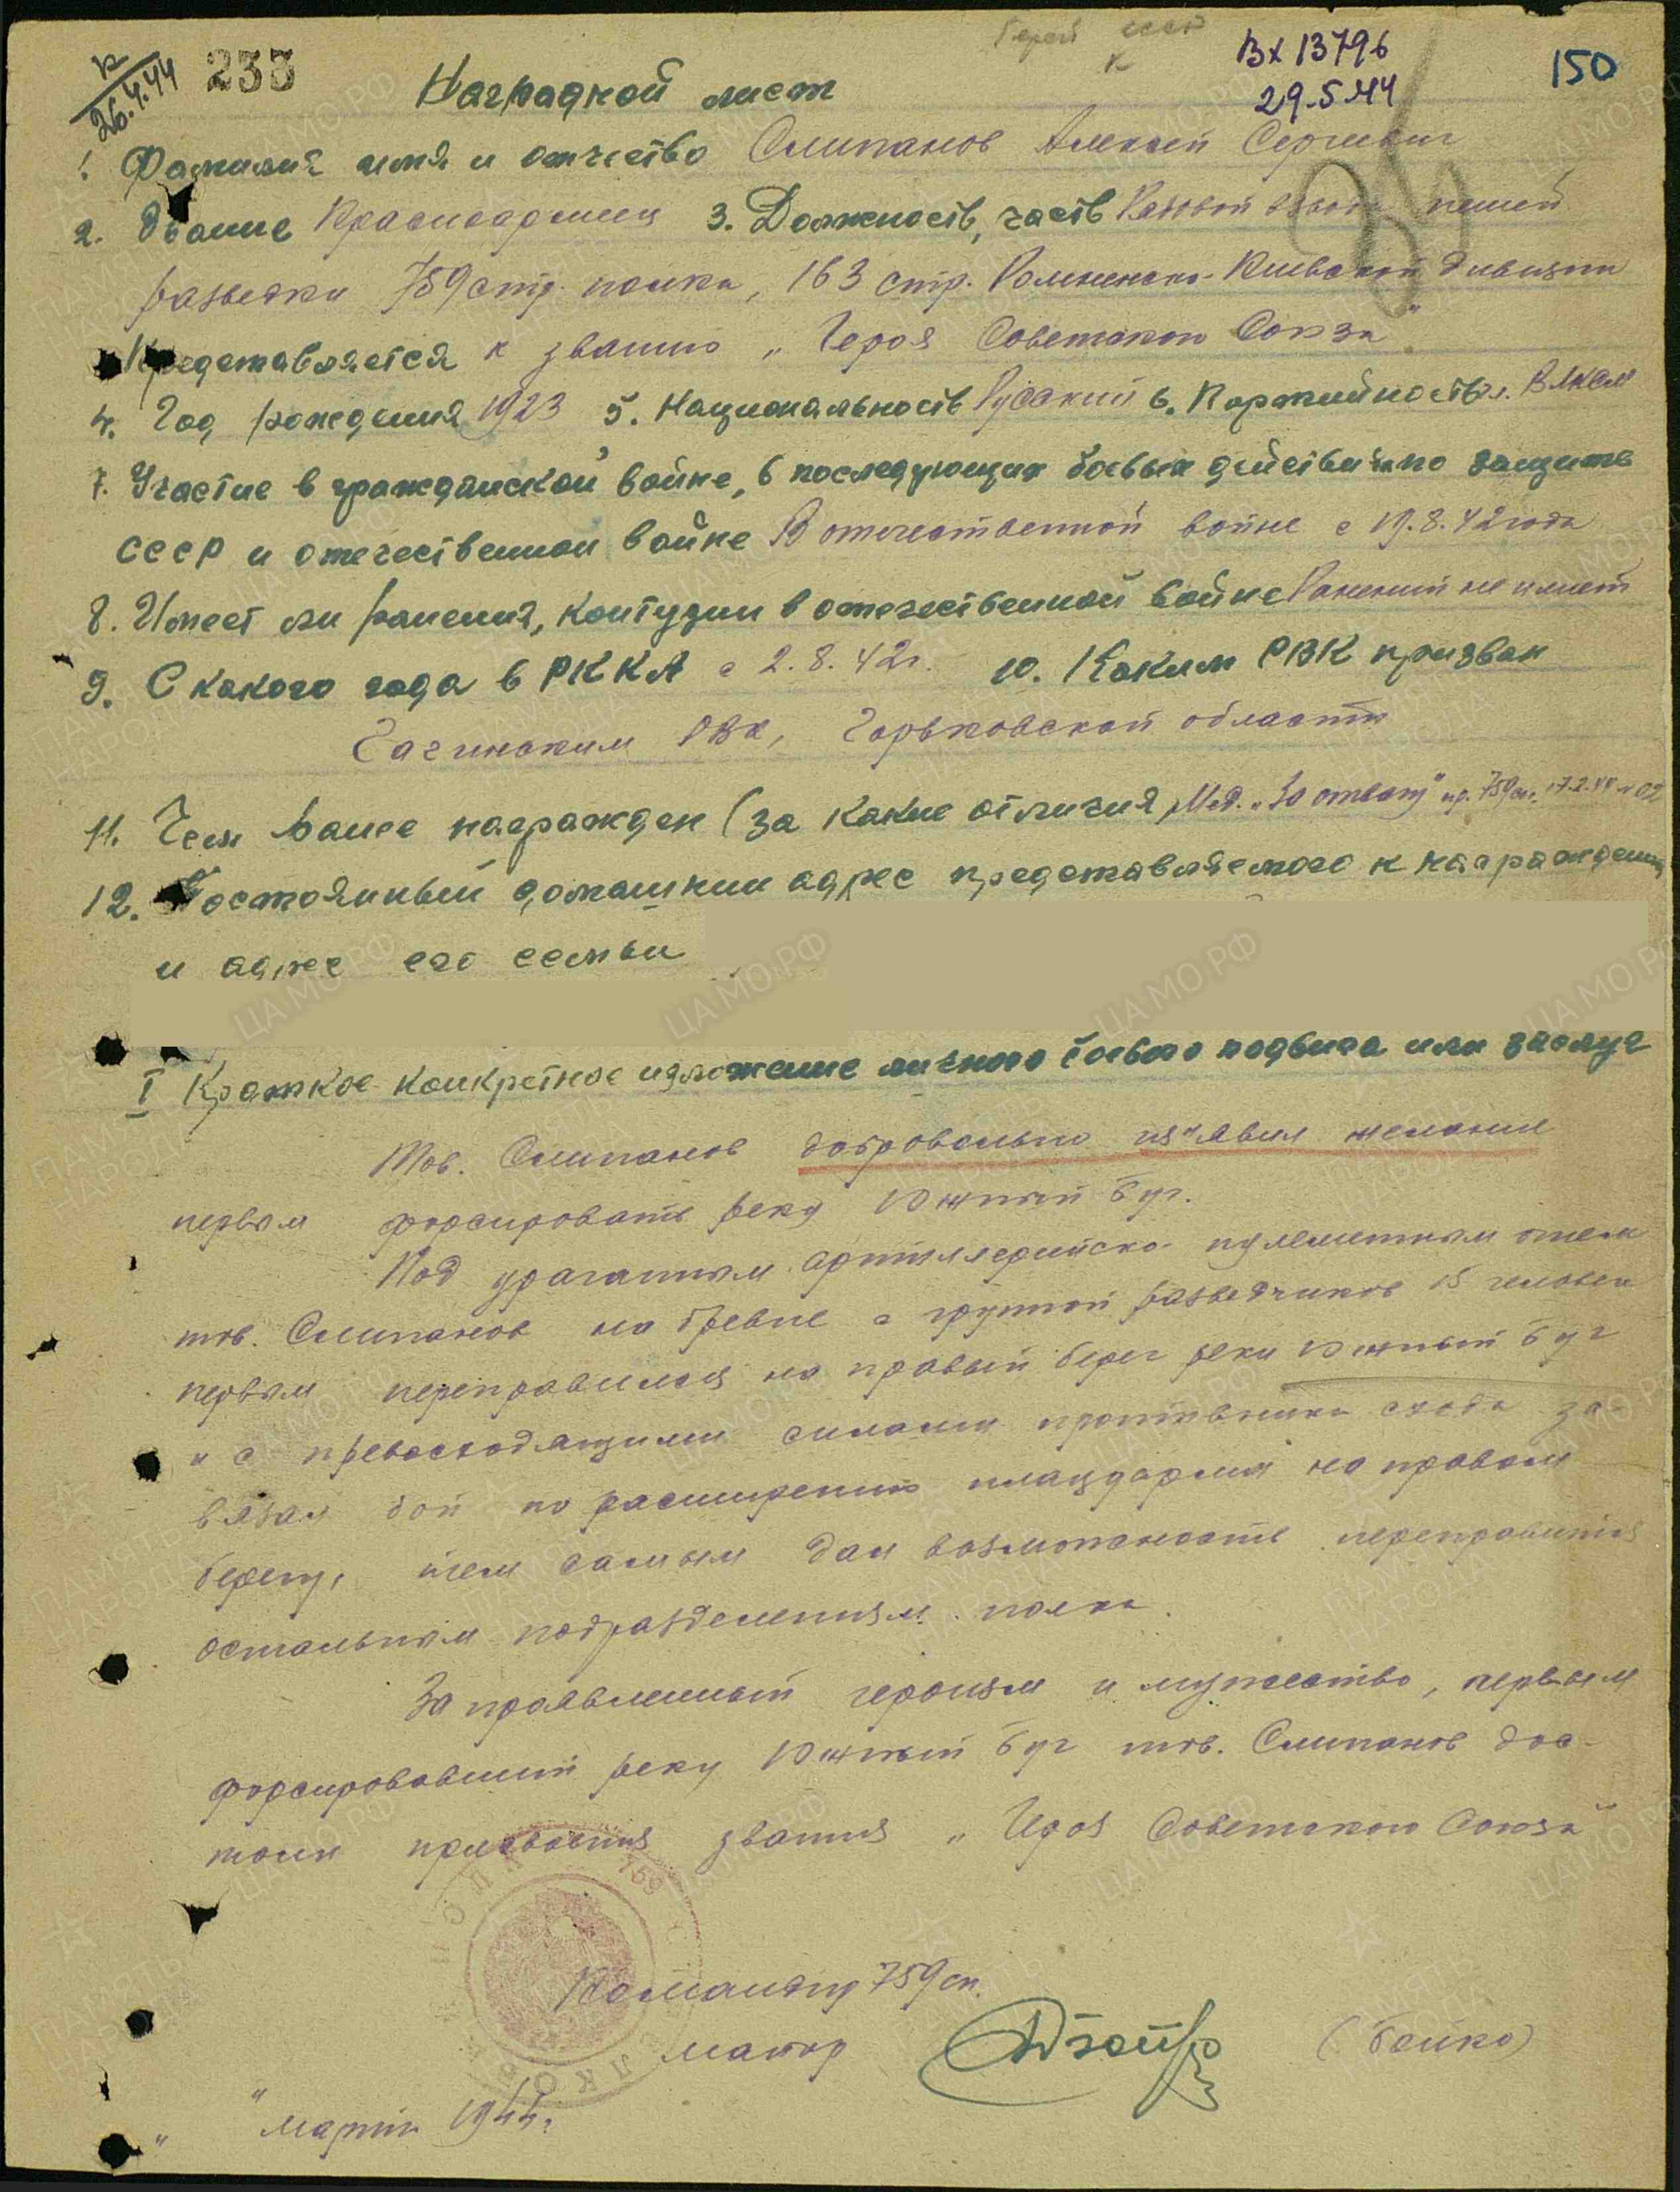 Герой СССР
к
Вх 13796
29.5.44
150
26.4.44
233
Наградной лист
1. Фамилия имя и отчество Слипанов Алексей Сергеевич
2. Звание Красноармеец 3. Должность, часть Рядовой взвода пешей
разведки 759 стр. полка, 163 стр. Ромненско-Киевской дивизии
Представляется к званию „Героя Советского Союза"
4. Год рождения 1923 5. Национальность Русский 6. Партийность чл. ВЛКСМ
7. Участие в гражданской войне, в последующих боевых действиях по защите
СССР и отечественной войне В отечественной войне с 19.8.42 года
8. Имеет ли ранения, контузии в отечественной войне Ранений не имеет
9. С какого года в РККА с 2.8.42г. 10. Каким РВК призван
РВК, Горьковской области
11. Чем ранее награжден (за какие отличия Мед. „За отвагу" пр. 759 сп. 17.2.44 № 02
12. Постоянный домашний адрес представляемого к награждению
и адрес его семьи
I Краткое конкретное изложение личного боевого подвига или заслуг
Тов. Слипанов добровольно из"явил желание
первым форсировать реку Южный Буг.
Под ураганным артиллерийско-пулеметным огнем
тов. Слипанов на бревне с группой разведчиков 15 человек
первым переправился на правый берег реки Южный Буг
и с превосходящими силами противника сходу за-
вязал бой по расширению плацдарма на правом
берегу, тем самым дал возможность переправиться
остальным подразделениям полка.
За проявленный героизм и мужество, первым
форсировавший реку Южный Буг тов. Слипанов дос-
тоин присвоения звания „Героя Советского Союза"
Командир 759 сп.
майор (Бойко)
„ " марта 1944г.
759
ПАМЯТЬ НАРОДА
ЦАМО.РФ